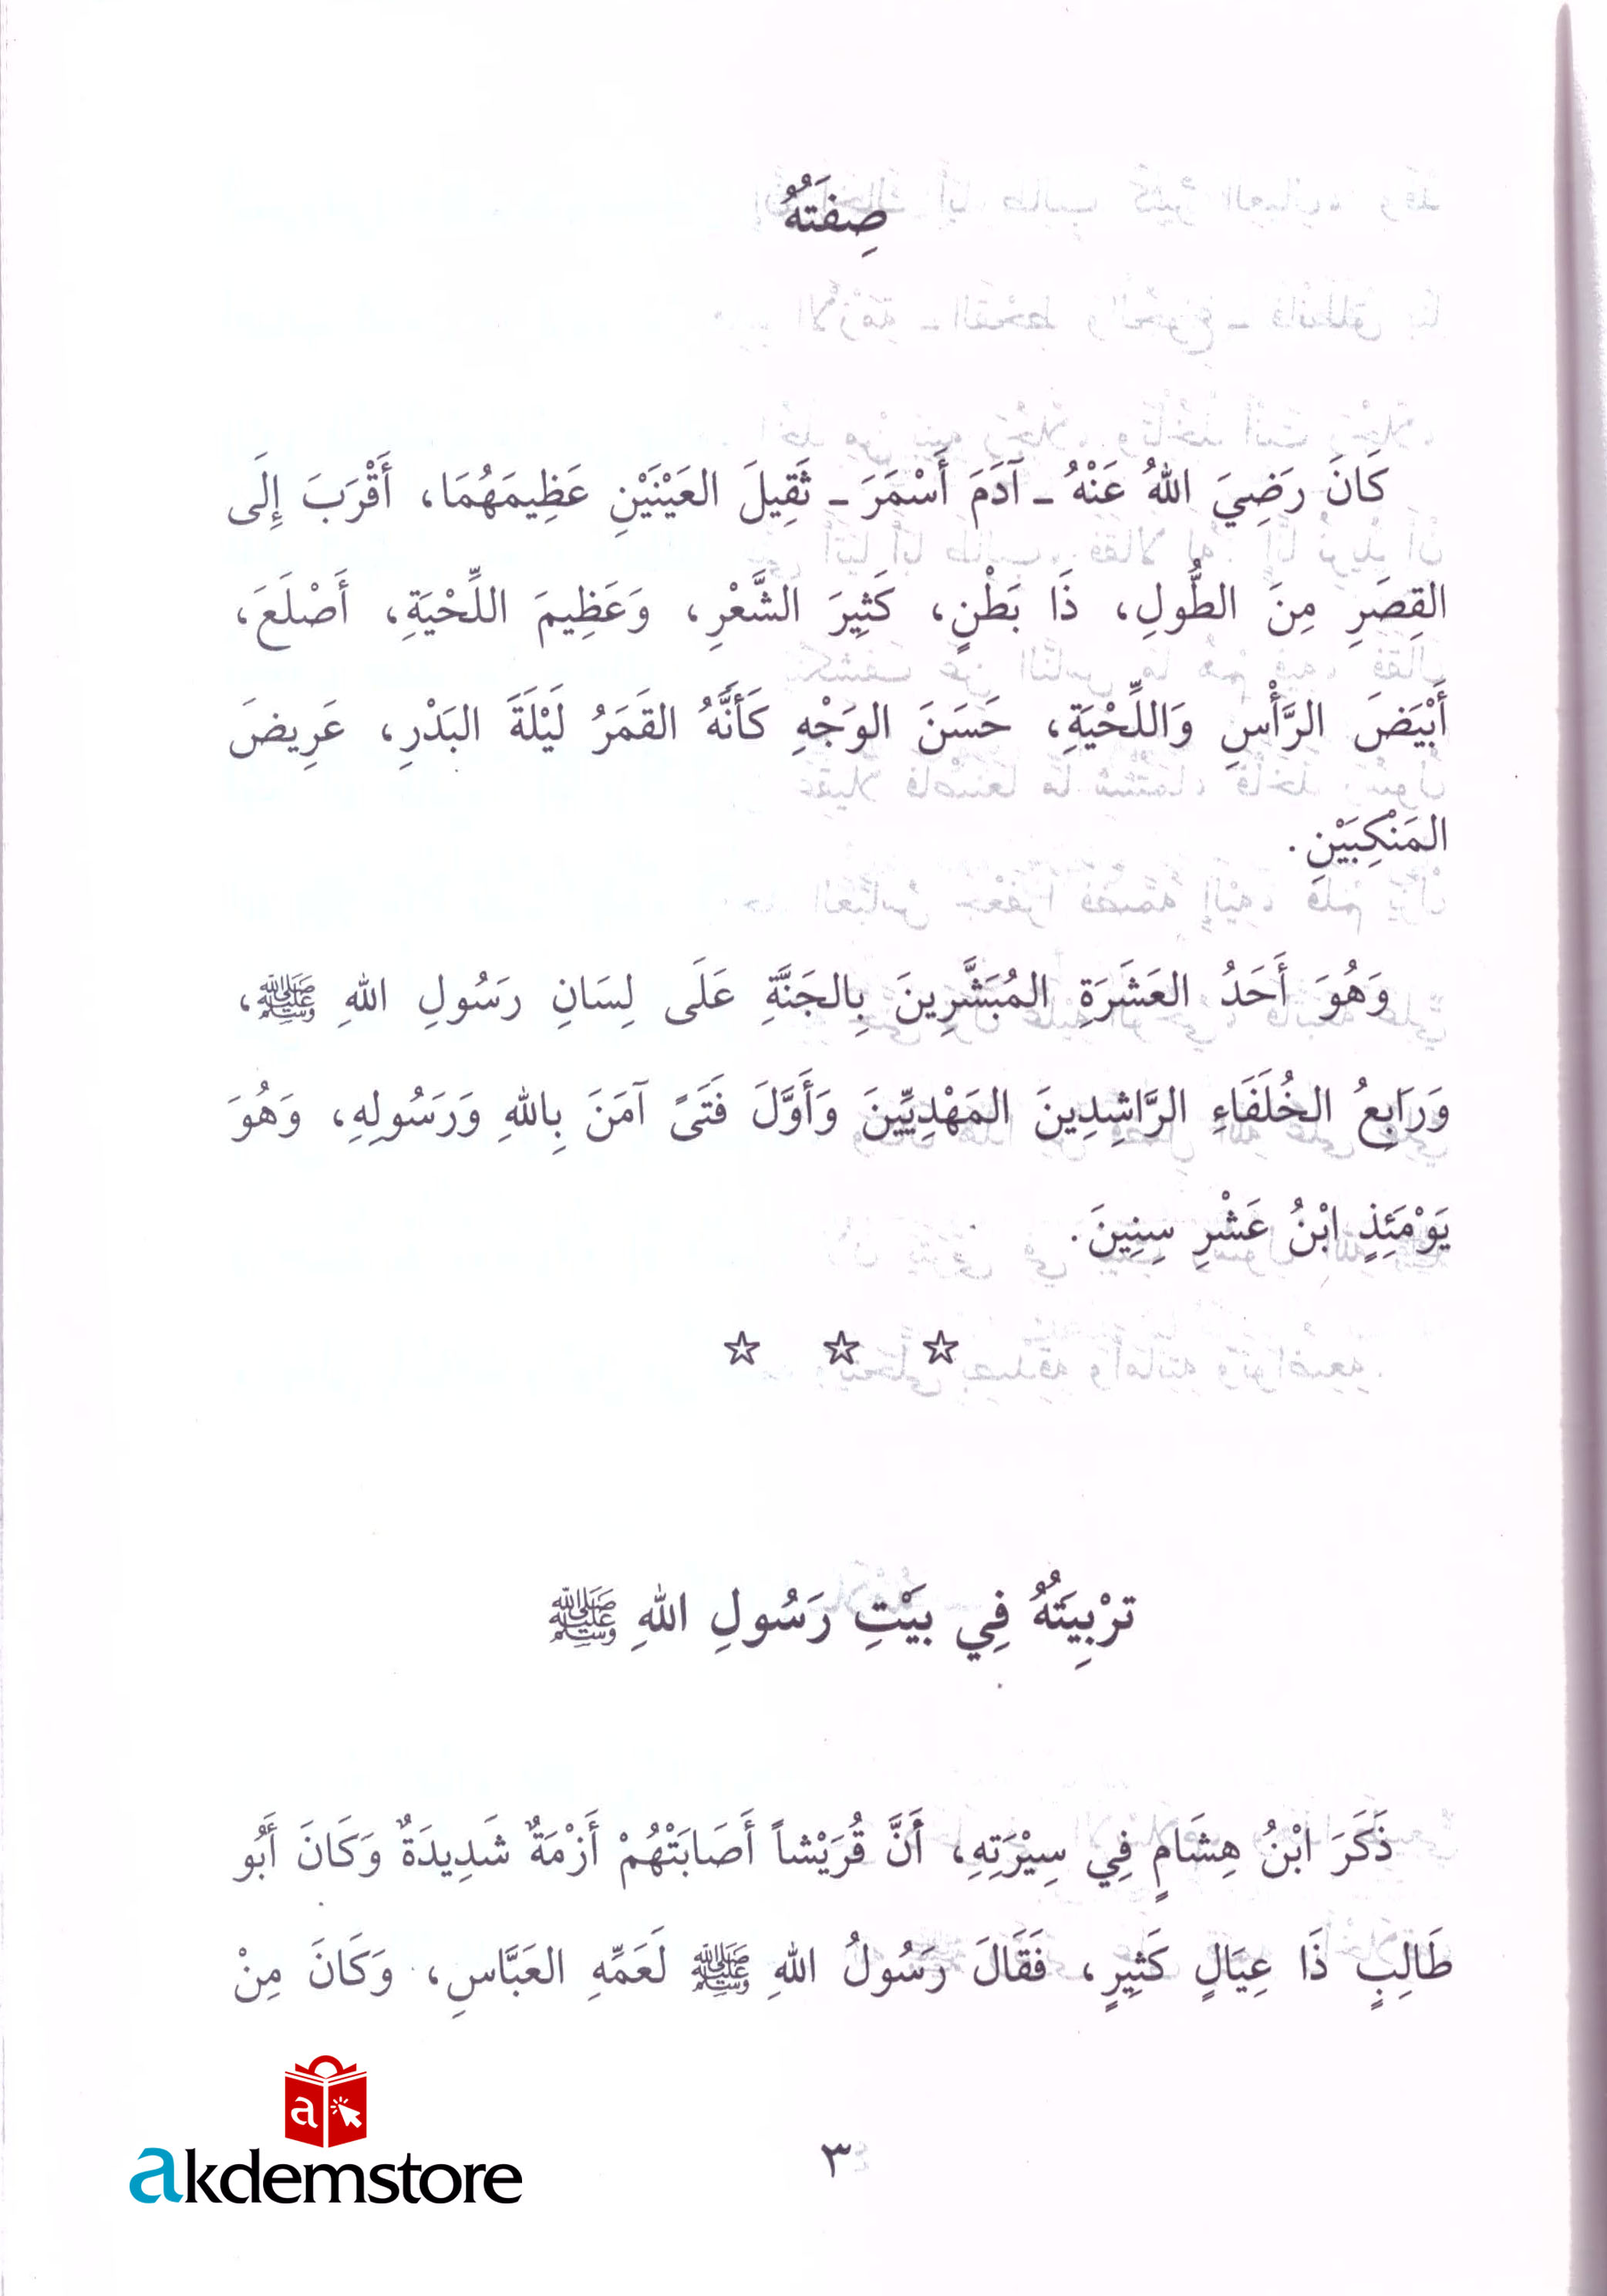 صِفَتُهُ
كَانَ رَضِيَ اللهُ عَنْهُ ـ آدَمَ أَسْمَرَ ـ ثَقِيلَ العَيْنَيْنِ عَظِيمَهُمَا، أَقْرَبَ إِلَى
القِصَرِ مِنَ الطُّولِ، ذَا بَطْنٍ، كَثِيرَ الشَّعْرِ، وَعَظِيمَ اللِّحْيَةِ، أَصْلَعَ،
أَبْيَضَ الرَّأْسِ وَاللِّحْيَةِ، حَسَنَ الوَجْهِ كَأَنَّهُ القَمَرُ لَيْلَةَ البَدْرِ، عَرِيضَ
المَنْكِبَيْنِ.
وَهُوَ أَحَدُ العَشَرَةِ المُبَشَّرِينَ بِالجَنَّةِ عَلَى لِسَانِ رَسُولِ اللهِ ﷺ،
وَرَابِعُ الخُلَفَاءِ الرَّاشِدِينَ المَهْدِيِّينَ وَأَوَّلَ فَتَىً آمَنَ بِاللهِ وَرَسُولِهِ، وَهُوَ
يَوْمَئِذٍ ابْنُ عَشْرِ سِنِينَ.
☆ ☆ ☆
تَرْبِيَتُهُ فِي بَيْتِ رَسُولِ اللهِ ﷺ
ذَكَرَ ابْنُ هِشَامٍ فِي سِيْرَتِهِ، أَنَّ قُرَيْشاً أَصَابَتْهُمْ أَزْمَةٌ شَدِيدَةٌ وَكَانَ أَبُو
طَالِبٍ ذَا عِيَالٍ كَثِيرٍ، فَقَالَ رَسُولُ اللهِ ﷺ لَعَمِّهِ العَبَّاسِ، وَكَانَ مِنْ
a
akdemstore
٣